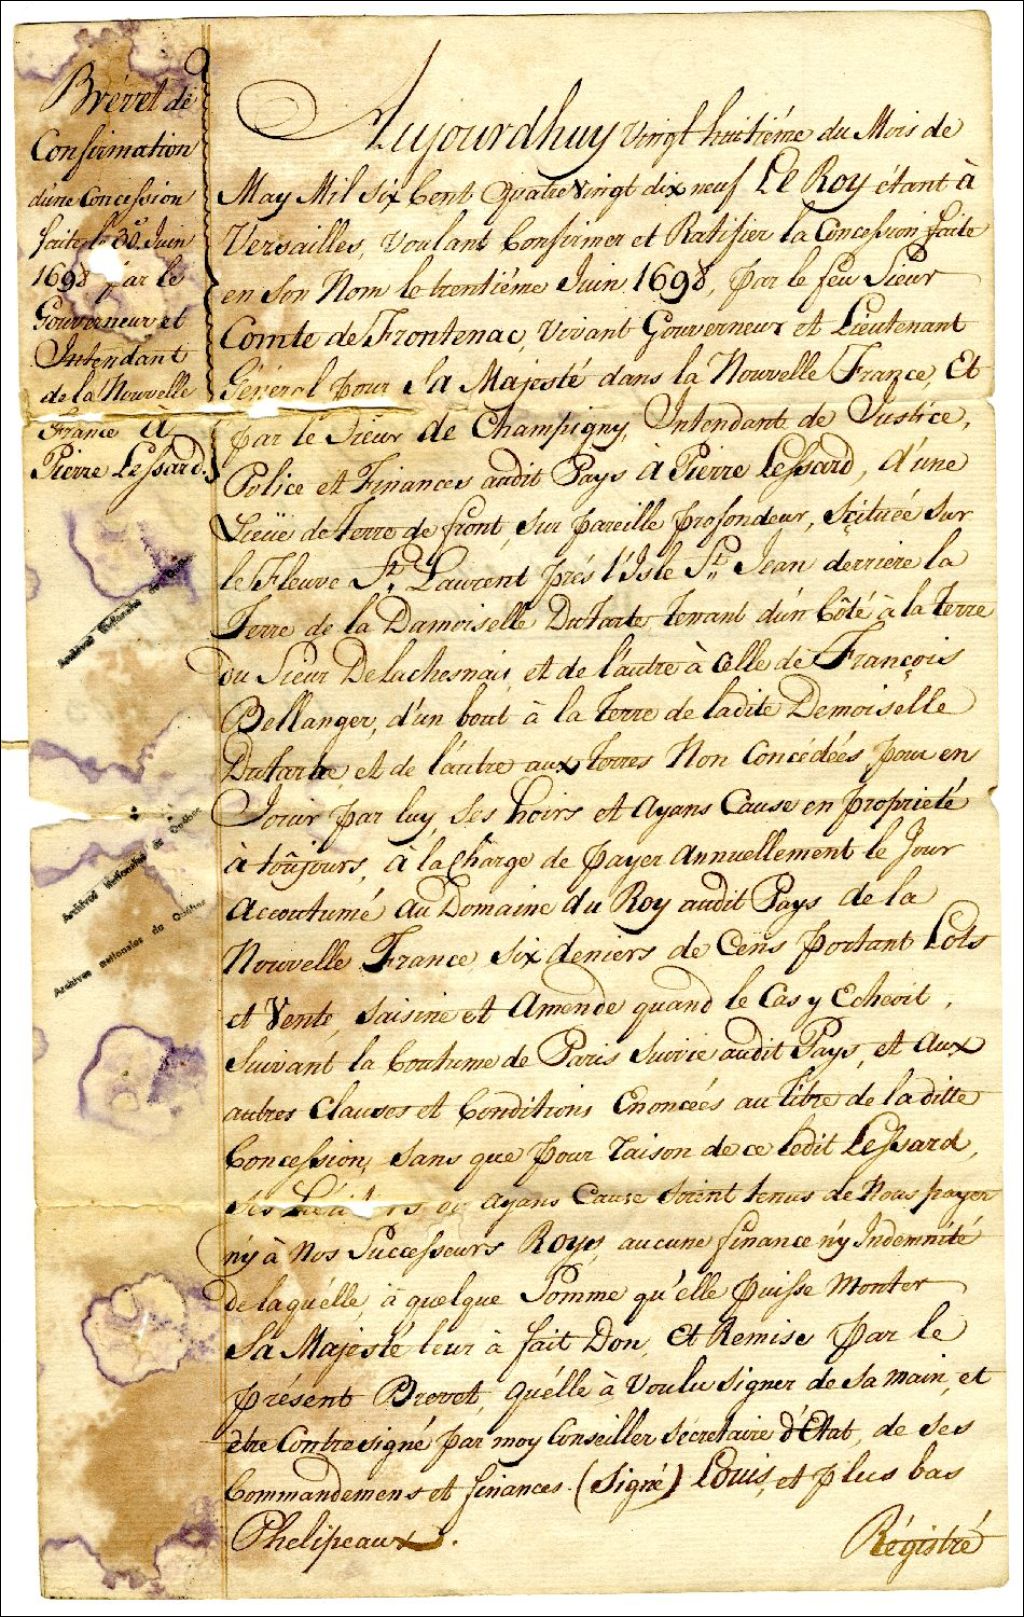 Brévet de
Confirmation
d'une Concession
faite le 30.e Juin
1698 par le
Gouverneur et
Intendant
de la Nouvelle
France à
Pierre Lessard.
Aujourdhuy vingt huitiéme du Mois de
May Mil six Cent Quatre vingt dix neuf Le Roy étant à
Versailles, voulant Confirmer et Ratifier la Concession faite
en son Nom le trentiéme Juin 1698, par le feu Sieur
Comte de Frontenac, vivant Gouverneur et Lieutenant
Général pour Sa Majesté dans la Nouvelle France, Et
par le Sieur de Champigny, Intendant de Justice,
Police et Finances audit Pays à Pierre Lessard, d'une
Lieüe de terre de front, sur pareille profondeur, scituée sur
le Fleuve St. Laurent prés l'Isle St. Jean derriere la
Terre de la Damoiselle Dutarte tenant d'un Côté à la terre
du Sieur Delachesnais, et de l'autre à celle de François
Bellanger, d'un bout à la terre de ladite Demoiselle
Dutartre, et de l'autre aux terres Non Concédées pour en
Jouir par luy, ses hoirs et ayans Cause en proprieté
à toûjours, à la Charge de payer annuellement le Jour
accoutumé au Domaine du Roy audit Pays de la
Nouvelle France, six deniers de Cens portant Lots
et Vente, saisine et amende quand le Cas y Echeoit,
suivant la Coutume de Paris suivie audit Pays, et aux
autres Clauses et Conditions Enoncées au titre de la ditte
Concession, sans que pour raison de ce ledit Lessard,
ses ayans Cause soient tenus de Nous payer
n'y à Nos Successeurs Roys, aucune finance n'y Indemnité
de laquélle, à quelque Somme qu'elle puisse monter
Sa Majesté leur à fait Don, et Remise par le
présent Brevet, quélle à voulu signer de sa main, et
être Contresigné par moy Conseiller sécretaire d'Etat, de ses
Commandemens et finances. (signé) Louis, et plus bas
Phelipeaux.
Régistré
Archives nationales de Québec
Archives nationales de Québec
Archives nationales de Québec